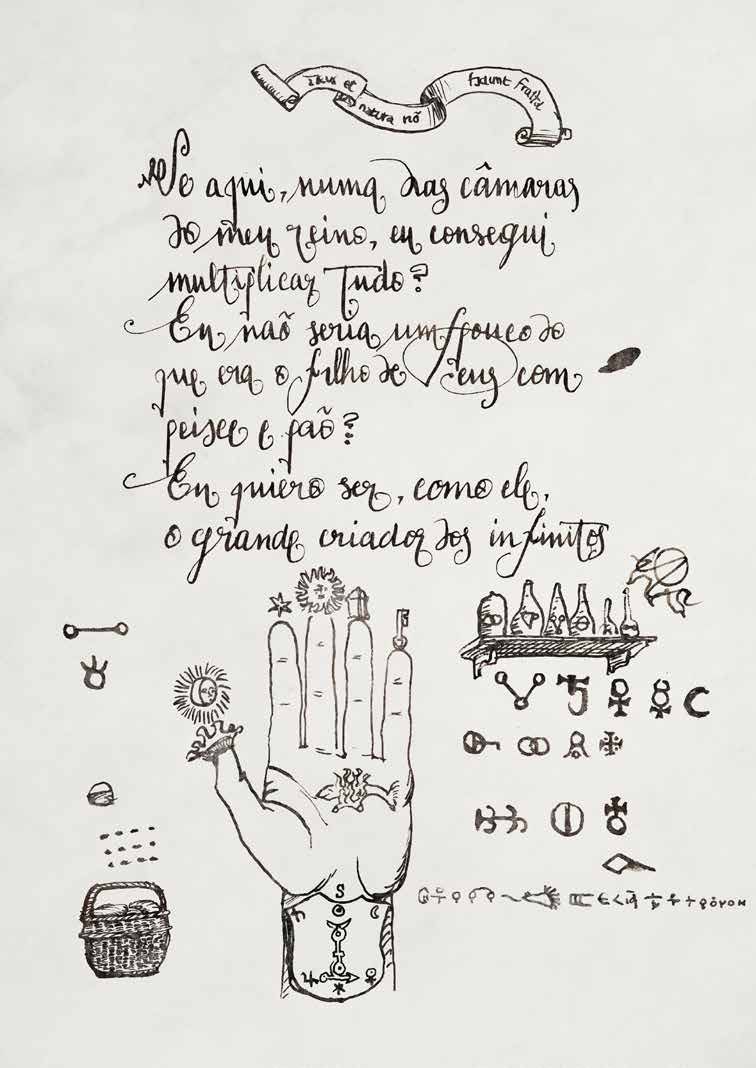 et
natura nō
Se aqui, numa das câmaras
do meu reino, eu consegui
multiplicar Tudo?
Eu naõ seria um pouco do
que era o filho de Deus com
peixe e paõ?
Eu quiero ser, como ele,
o grande criador dos infinitos
S